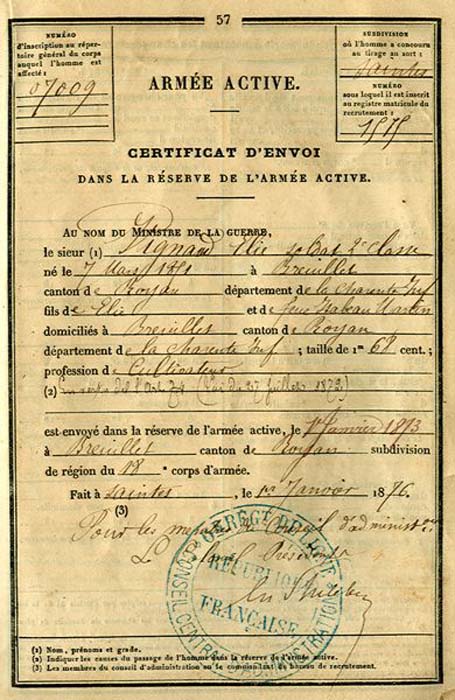 57
NUMÉRO
d'inscription au réper-
toire général du corps
auquel l'homme est
affecté :
07009
SUBDIVISION
où l'homme a concouru
au tirage au sort :
Saintes
NUMÉRO
sous lequel il est inscrit
au registre matricule du
recrutement :
1575
ARMÉE ACTIVE.
CERTIFICAT D'ENVOI
DANS LA RÉSERVE DE L'ARMÉE ACTIVE.
AU NOM DU MINISTRE DE LA GUERRE,
le sieur (1) Vignaud Elie soldat 2e classe
né le 7 Mars 1851 à Breuillet
canton de Royan département de la Charente Infre
fils de Elie et de feue Isabeau
domiciliés à Breuillet canton de Royan
département de la Charente Infre ; taille de 1m 68 cent. ;
profession de Cultivateur
(2) de l'Art. 74 (Loi du 27 juillet 1872)
est envoyé dans la réserve de l'armée active, le 1er Janvier 1873
à Breuillet canton de Royan subdivision
de région du 18e corps d'armée.
Fait à Saintes, le 1er Janvier 1876.
(3)
Pour les membres du Conseil d'administon
L Président
RÉPUBLIQUE
FRANÇAISE
CONSEIL CENTRAL D'ADMINISTRATION
(1) Nom, prénoms et grade.
(2) Indiquer les causes du passage de l'homme dans la réserve de l'armée active.
(3) Les membres du conseil d'administration ou le commandant du bureau de recrutement.